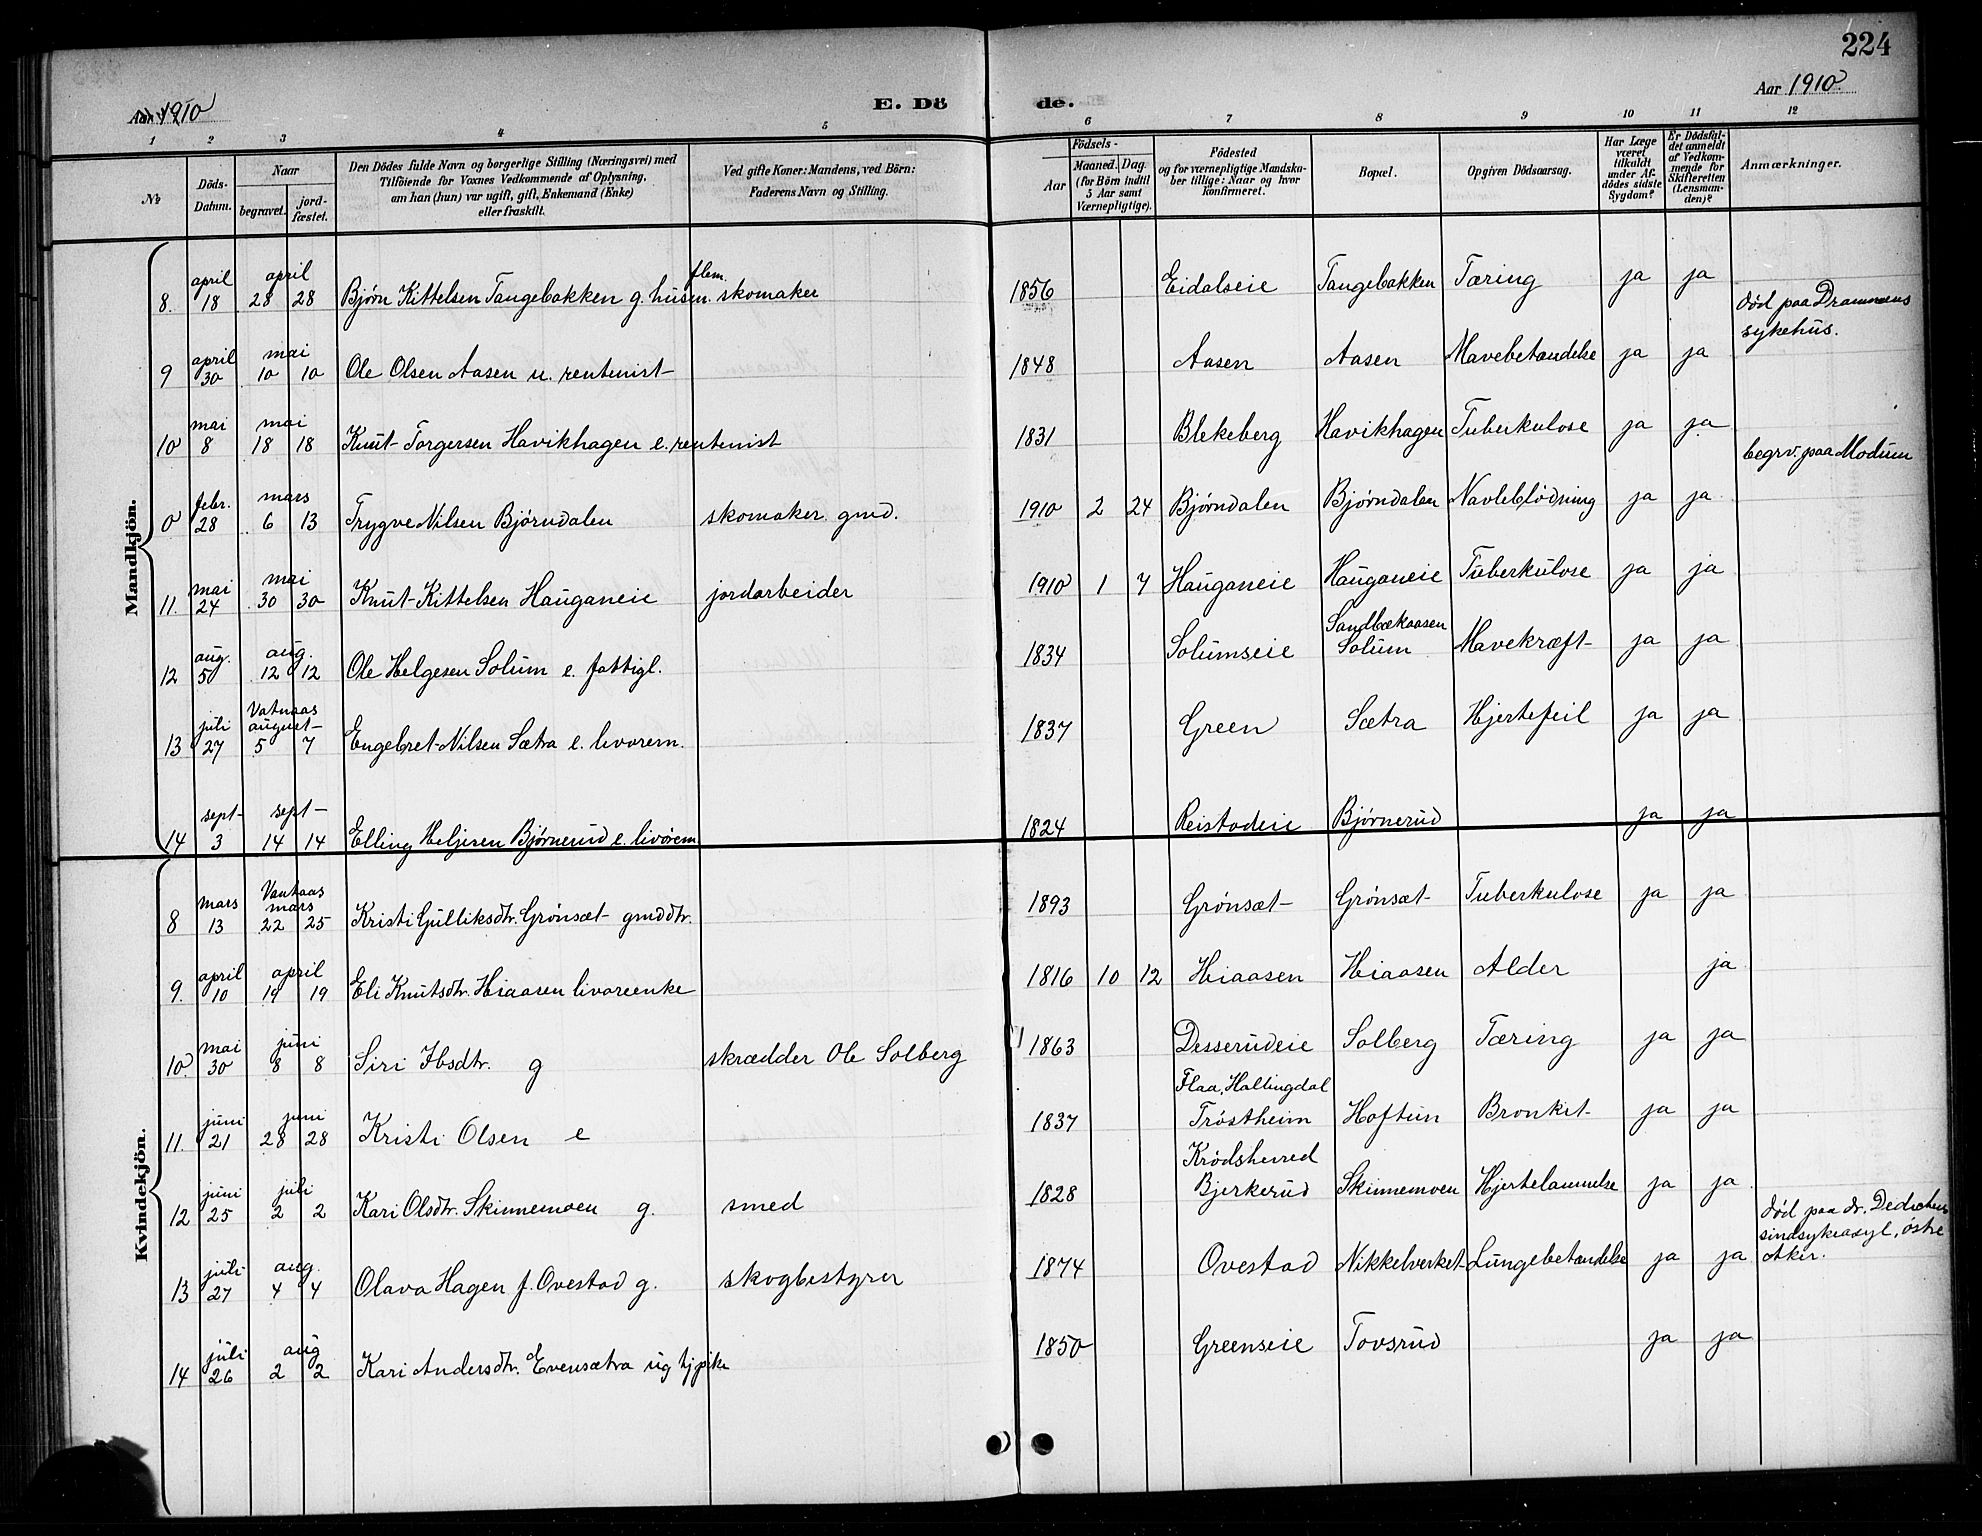 224
Aar 1910
E. Dö de.
Aar 1910
1 2 3 4 5 6 7 8 9 10 11 12
№
Döds-Datum.
Naar
begravet.
jord-fæstet.
Den Dödes fulde Navn og borgerlige Stilling (Næringsvei) med
Tilföiende for Voxnes Vedkommende af Oplysning,
om han (hun) var ugift, gift, Enkemand (Enke)
eller fraskilt.
Ved gifte Koner: Mandens, ved Börn:
Faderens Navn og Stilling.
Födsels-
Aar
Maaned. Dag.
(for Börn indtil
5 Aar samt
Værnepligtige).
Födested
og for værnepligtige Mandska-
ber tillige: Naar og hvor
konfirmeret.
Bopæl.
Opgiven Dödsaarsag.
Har Læge
været
tilkaldt
under Af-
dödes sidste
Sygdom?
Er Dödsfal-
det anmeldt
af Vedkom-
mende for
Skifteretten
(Lensman-
den)?
Anmærkninger.
Mandkjön.
8. april 18 april 28 28 Bjørn Kittelsen Tangebakken g. husm. skomaker 1856 Eidalseie Tangebakken Tæring ja ja død paa Drammens sykehus.
9 april 30 mai 10 10 Ole Olsen Aasen u. rentenist 1848 Aasen Aasen Mavebetændelse ja ja
10 mai 8 mai 18 18 Knut Torgersen Havikhagen e. rentenist 1831 Blekeberg Havikhagen Tuberkulose ja ja begrv. paa Modum
0 febr. 28 mars 6 13 Trygve Nilsen Bjørndalen skomaker gmd. 1910 2 24 Bjørndalen Bjørndalen Navleblødning ja ja
11. mai 24 mai 30 30 Knut Kittelsen Hauganeie jordarbeider 1910 1 7 Hauganeie Hauganeie Tuberkulose ja ja
12 aug. 5 aug. 12 12 Ole Helgesen Solum e. fattigl. 1834 Solumseie Sandbækaasen Solum Mavekræft ja ja
13 juli 27 Vatnaas august 5 7 Engebret Nilsen Sætra e. livørem. 1837 Green Sætra Hjertefeil ja ja
14 sept 3 sept 14 14 Elling Helgesen Bjørnerud e. livørem 1824 Reistadeie Bjørnerud ja ja
Kvindekjön.
8 mars 13 mars 22 25 Kristi Gulliksdtr. Grønsæt gmddtr. 1893 Grønsæt Grønsæt Tuberkulose ja ja
9. april 10 april 19 19 Eli Knutsdtr. Hiaasen livøreenke 1816 10 12 Hiaasen Hiaasen Alder ja
10 mai 30 juni 8 8 Siri Ibsdtr. g skrædder Ole Solberg 1863 Desserudeie Solberg Tæring ja ja
11. juni 21 juni 28 28 Kristi Olsen e 1837 Flaa, Hallingdal Trøstheim Hoftun Bronkit ja ja
12 juni 25 juli 2 2 Kari Olsdtr. Skinnemoen g. smed 1828 Krødsherred Bjerkerud Skinnemoen Hjertelammelse ja ja
13 juli 27 aug. 4 4 Olava Hagen f. Ovestad g. skogbestyrer 1874 Ovestad Nikkelverket Lungebetændelse ja ja død paa dr. Dedichens sindsykeasyl, østre Aker.
14 juli 26 aug 2 2 Kari Andersdtr. Evensætra ug tjpike 1850 Greenseie Tovsrud ja ja